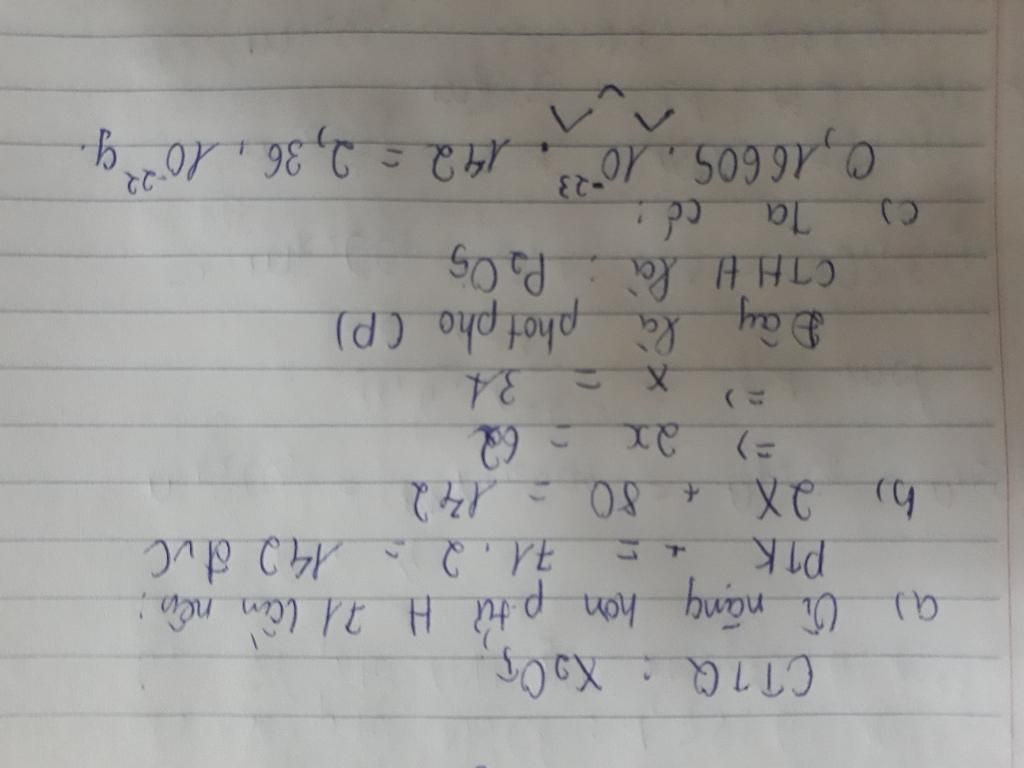 CTTQ : X2O5
a) Vì nặng hơn p.tử H 71 lần nên:
PTK + = 71 . 2 = 142 đvC
b) 2X + 80 = 142
=> 2x = 62
=> X = 31
Đây là photpho (P)
CTHH là : P2O5
c) Ta có :
0,16605 . 10⁻²³ . 142 = 2,36 . 10⁻²² g.